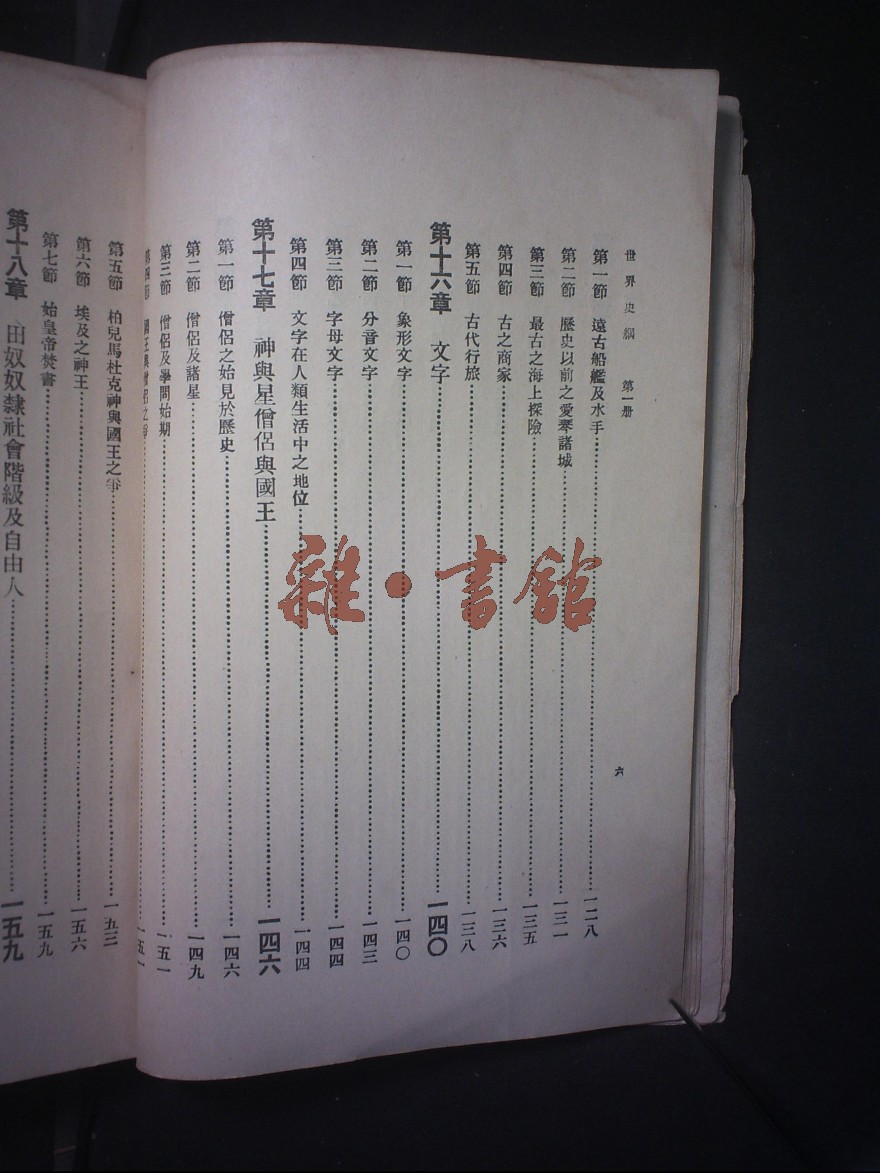 世界史綱　第一册
第一節　遠古船艦及水手……一二八
第二節　歷史以前之愛琴諸城……一三一
第三節　最古之海上探險……一三五
第四節　古之商家……一三六
第五節　古代行旅……一三八
第十六章　文字……一四〇
第一節　象形文字……一四〇
第二節　分音文字……一四三
第三節　字母文字……一四四
第四節　文字在人類生活中之地位……一四四
第十七章　神與星僧侶與國王……一四六
第一節　僧侶之始見於歷史……一四六
第二節　僧侶及諸星……一四九
第三節　僧侶及學問始期……一五一
第四節　國王與僧侶之爭……一五一
六
第五節　柏兒馬杜克神與國王之爭……一五三
第六節　埃及之神王……一五六
第七節　始皇帝焚書……一五九
第十八章　田奴奴隸社會階級及自由人……一五九
雜·書館